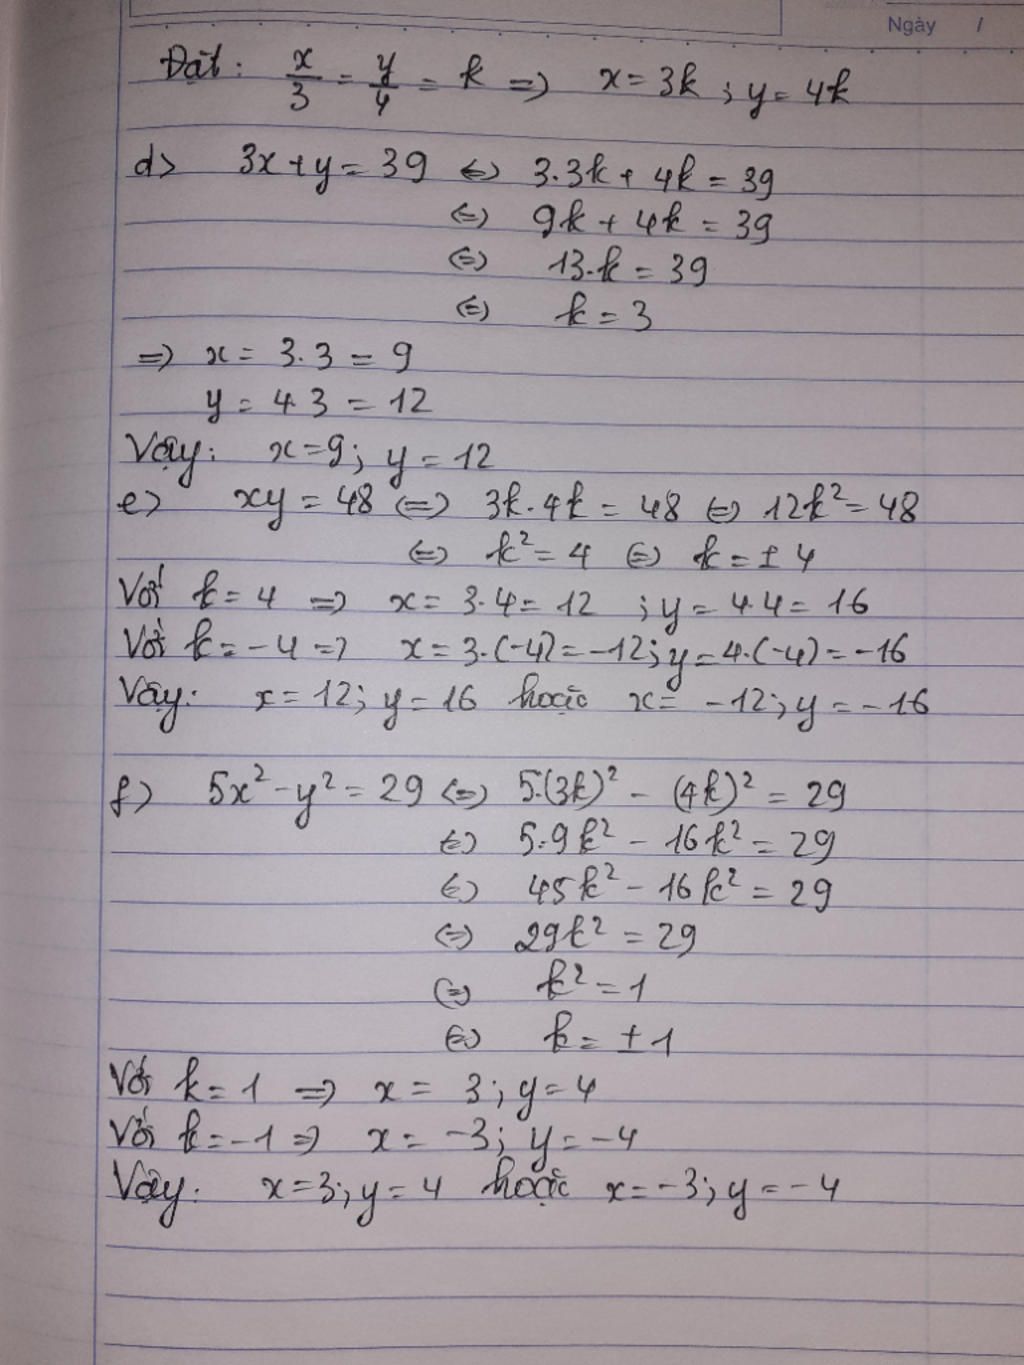 Ngày /
Đặt: x/3 = y/4 = k => x = 3k ; y = 4k
d> 3x + y = 39 <=> 3.3k + 4k = 39
<=> 9k + 4k = 39
<=> 13.k = 39
<=> k = 3
=> x = 3.3 = 9
y = 4.3 = 12
Vậy: x = 9; y = 12
e> xy = 48 <=> 3k.4k = 48 <=> 12k² = 48
<=> k² = 4 <=> k = ± 4
Với k = 4 => x = 3.4 = 12 ; y = 4.4 = 16
Với k = -4 => x = 3.(-4) = -12; y = 4.(-4) = -16
Vậy: x = 12; y = 16 hoặc x = -12; y = -16
f) 5x² - y² = 29 <=> 5.(3k)² - (4k)² = 29
<=> 5.9k² - 16k² = 29
<=> 45k² - 16k² = 29
<=> 29k² = 29
<=> k² = 1
<=> k = ± 1
Với k = 1 => x = 3; y = 4
Với k = -1 => x = -3; y = -4
Vậy: x = 3; y = 4 hoặc x = -3; y = -4